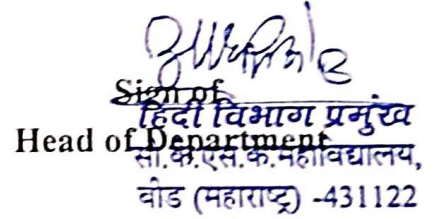 Sign of
हिंदी विभाग प्रमुख
Head of Department
सौ.के.एस.के.महाविद्यालय,
बीड (महाराष्ट्र) -431122